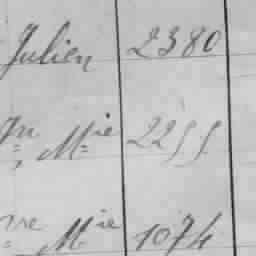 Julien 2380
Jn Mie 2255
ve Mie 1074